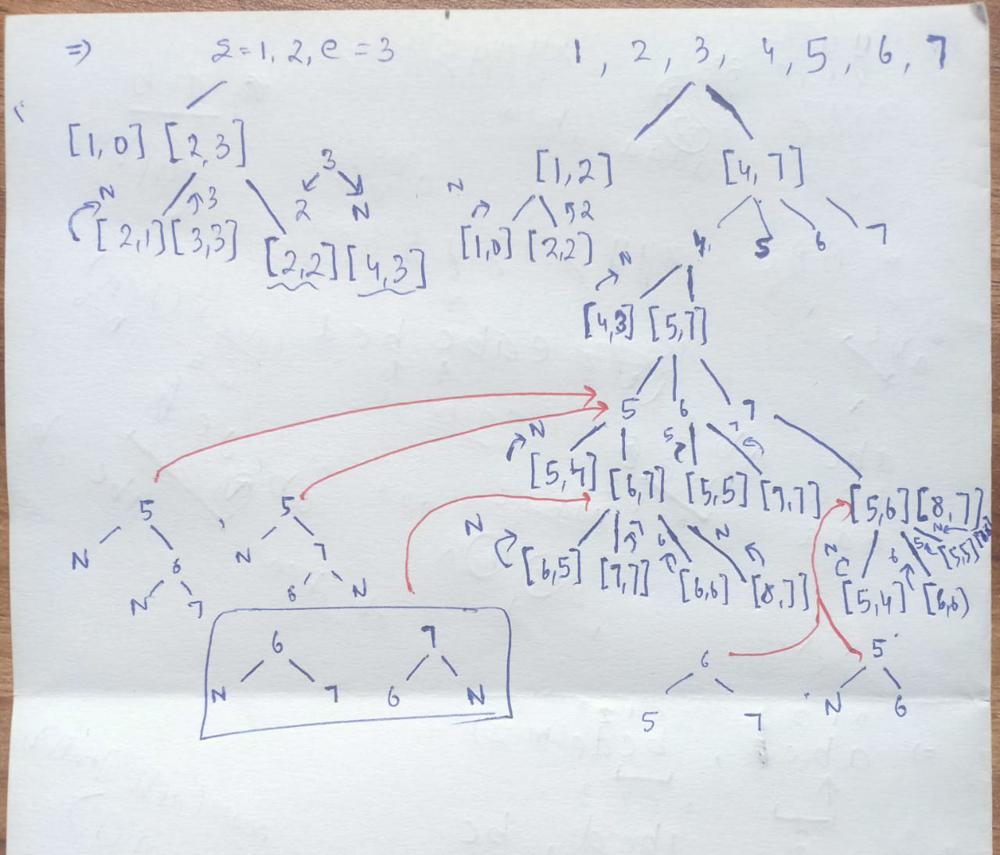 => s=1,2,e=3 1, 2, 3, 4, 5, 6, 7
[1,0] [2,3] 3 [1,2] [4,7]
N 3 2 N N 2
[2,1] [3,3] [1,0] [2,2] 4 5 6 7
[2,2] [4,3] N
[4,3] [5,7]
5 6 7
N 5 7
[5,4] [6,7] [5,5] [7,7] [5,6] [8,7]
5 5 N 7 6 N N 6 5 N
N 7 N 7 [6,5] [7,7] [6,6] [8,7] [5,4] [6,6] [5,5]
6 N 6 N
N 7
6 7 6 5
N 7 6 N 5 7 N 6